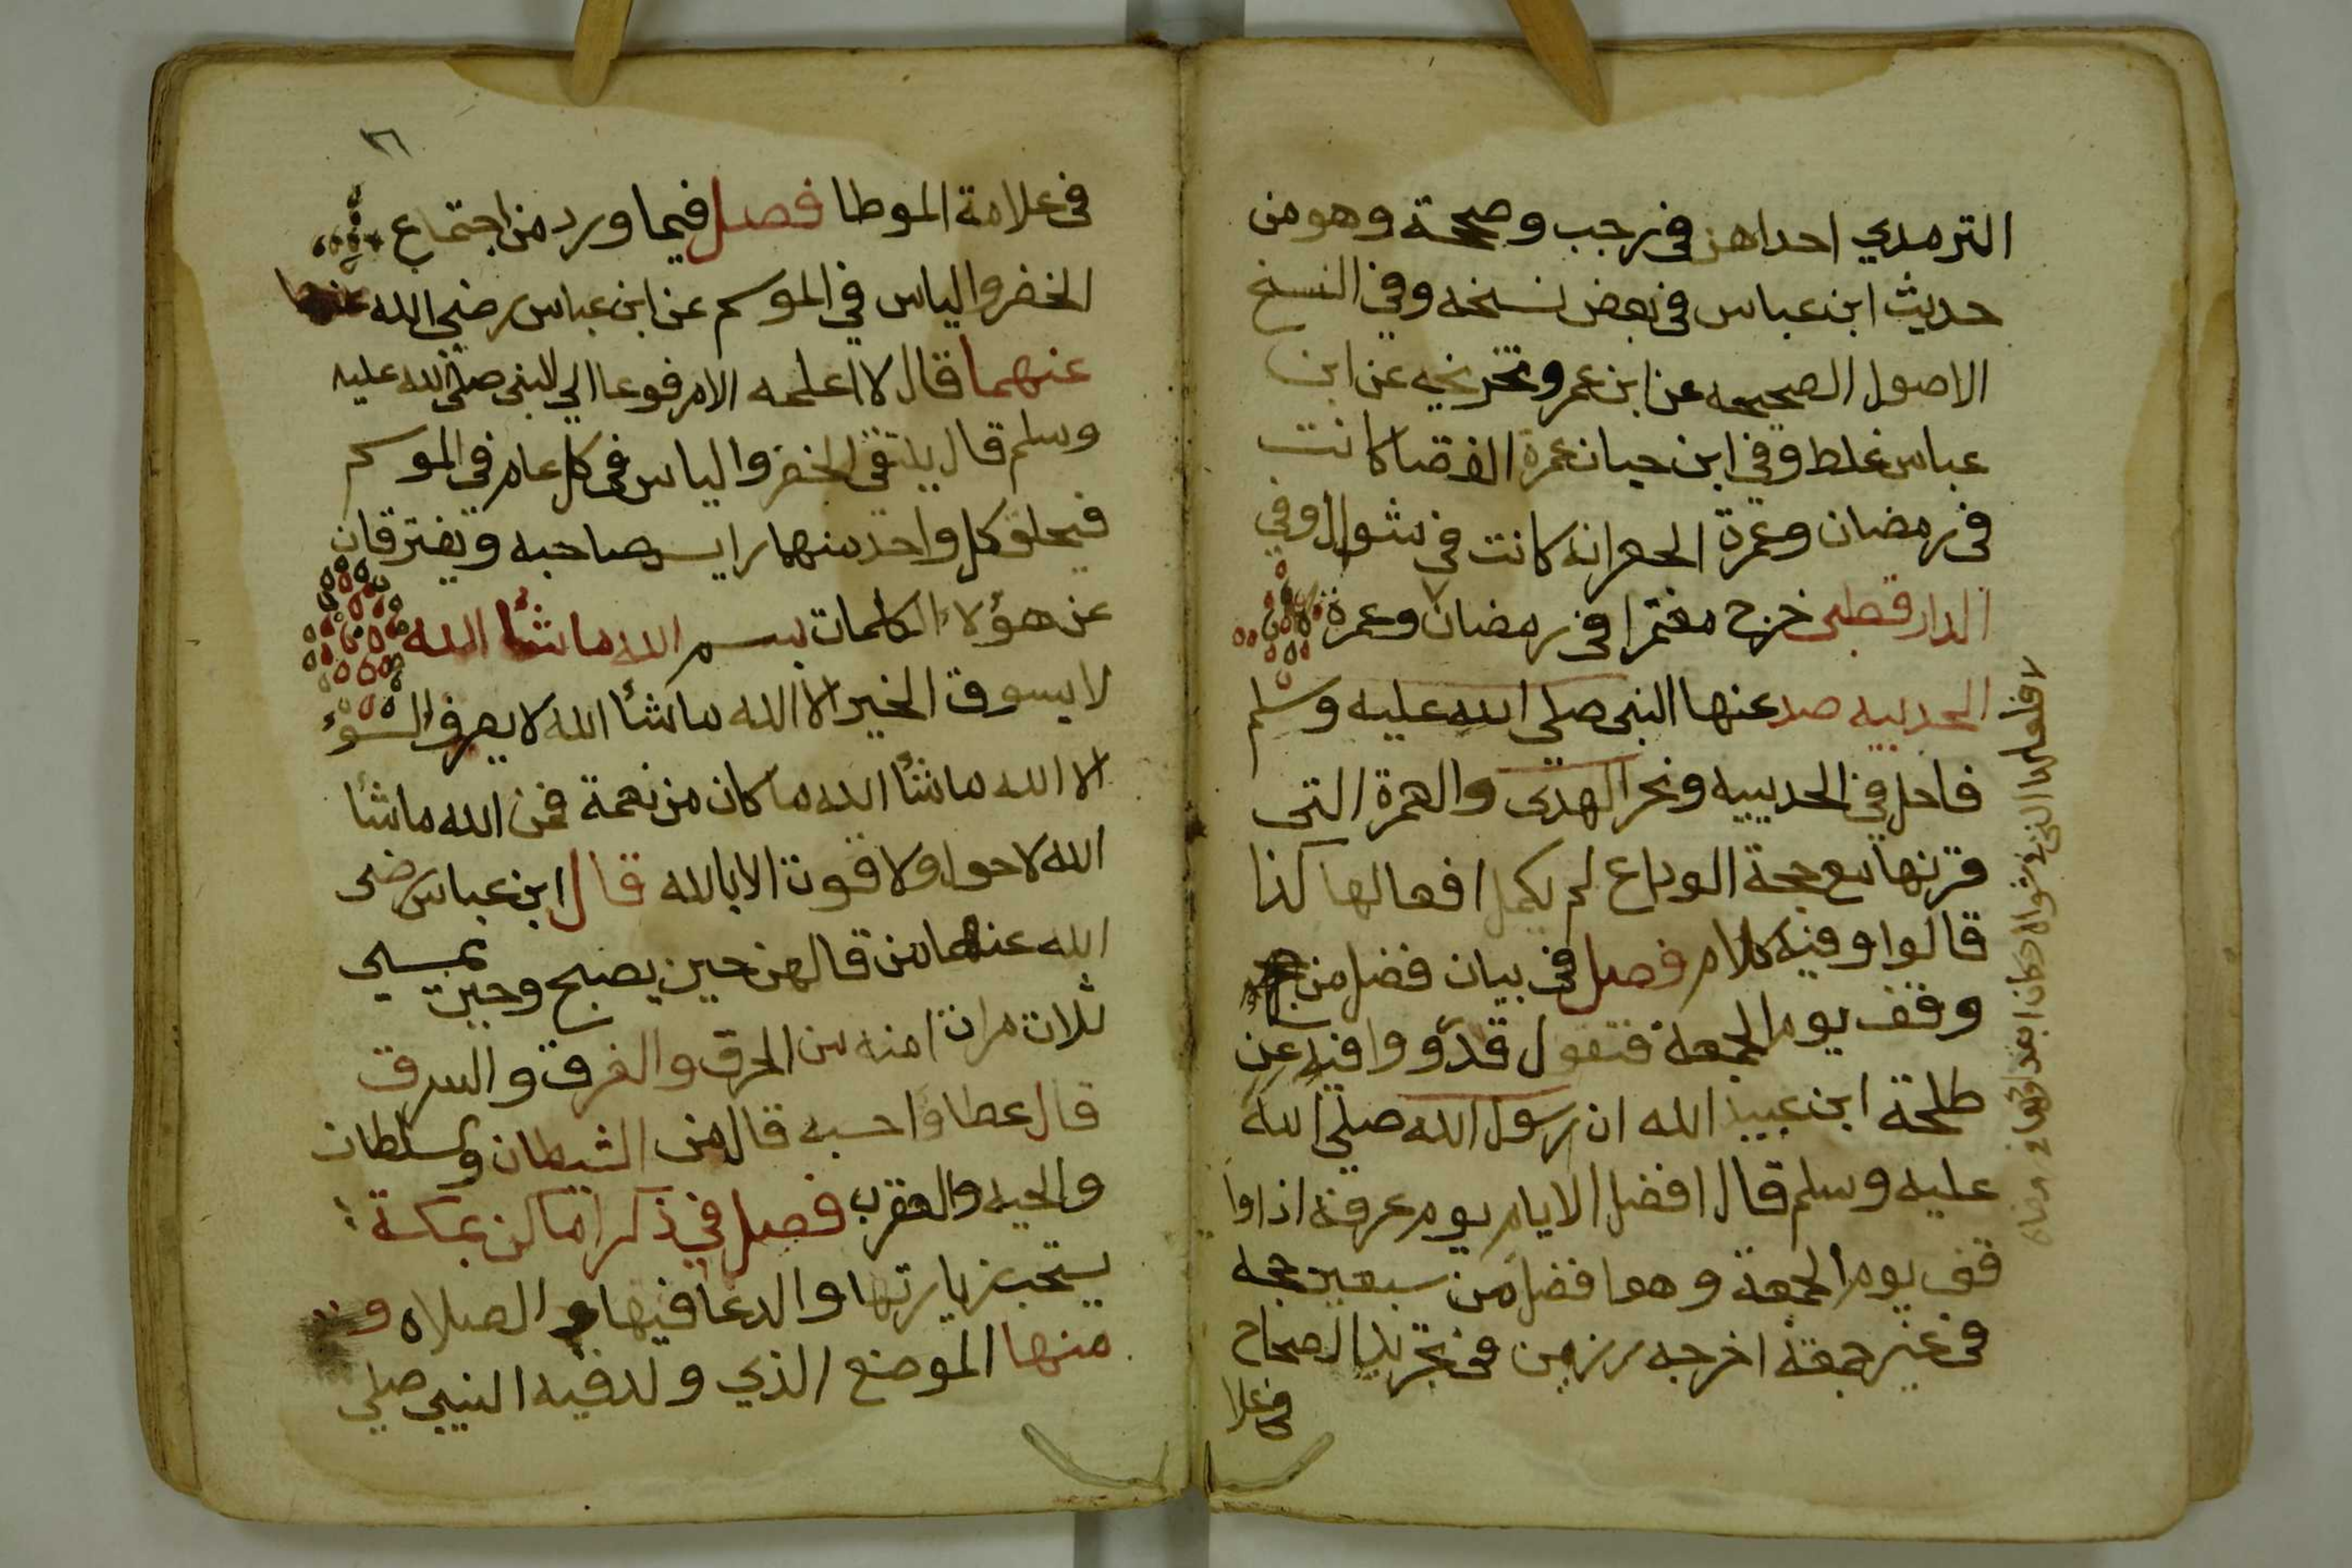 الترمدي احداهن في رجب وصححة وهو من
حديث ابن عباس في بعض نسخه وفي النسخ
الاصول الصحيحه عن ابن عمر وتخريجه عن ابن
عباس غلط وفي ابن حبان عمرة القضا كانت
في رمضان وعمرة الجعرانه كانت في شوال وفي
الدارقطني خرج معتمرا في رمضان وعمرة
الحديبيه صد عنها النبي صلي الله عليه وسلم
فاحل في الحديبيه ونحر الهدي والعمرة التي
قرنها مع حجة الوداع لم يكمل افعالها كذا
قالوا وفيه كلام فصل في بيان فضل من
وقف يوم الجمعة فتقول قد وافيه عن
طلحة ابن عبيد الله ان رسول الله صلي الله
عليه وسلم قال افضل الايام يوم عرفة اذا وا
قف يوم الجمعة وهو افضل من سبعين حجه
في غير جمعة اخرجه رزين في تجريد الصحاح
في علا
٣٦
في علامة الموطا فصل فيما ورد من اجتماع
الخضر والياس في الموسم عن ابن عباس رضي الله
عنهما قال لا اعلمه الا مرفوعا الي النبي صلي الله عليه
وسلم قال يلتقي الخضر والياس في كل عام في الموسم
فيحلق كل واحد منهما راس صاحبه ويفترقان
عن هؤلاء الكلمات بسم الله ما شأ الله
لا يسوق الخير الا الله ما شأ الله لا يصرف السوء
الا الله ما شأ الله ما كان من نعمة فمن الله ما شأ
الله لا حول ولا قوت الا بالله قال ابن عباس رضي
الله عنهما من قالهن حين يصبح وحين يمسي
ثلاث مرات امنه من الحرق والغرق والسرق
قال عطا واحسبه قال من الشيطان والسلطان
والحيه والعقرب فصل في ذكر اماكن بمكة
يستحب زيارتها والدعا فيها والصلاه و
منها الموضع الذي ولد فيه النبي صلي